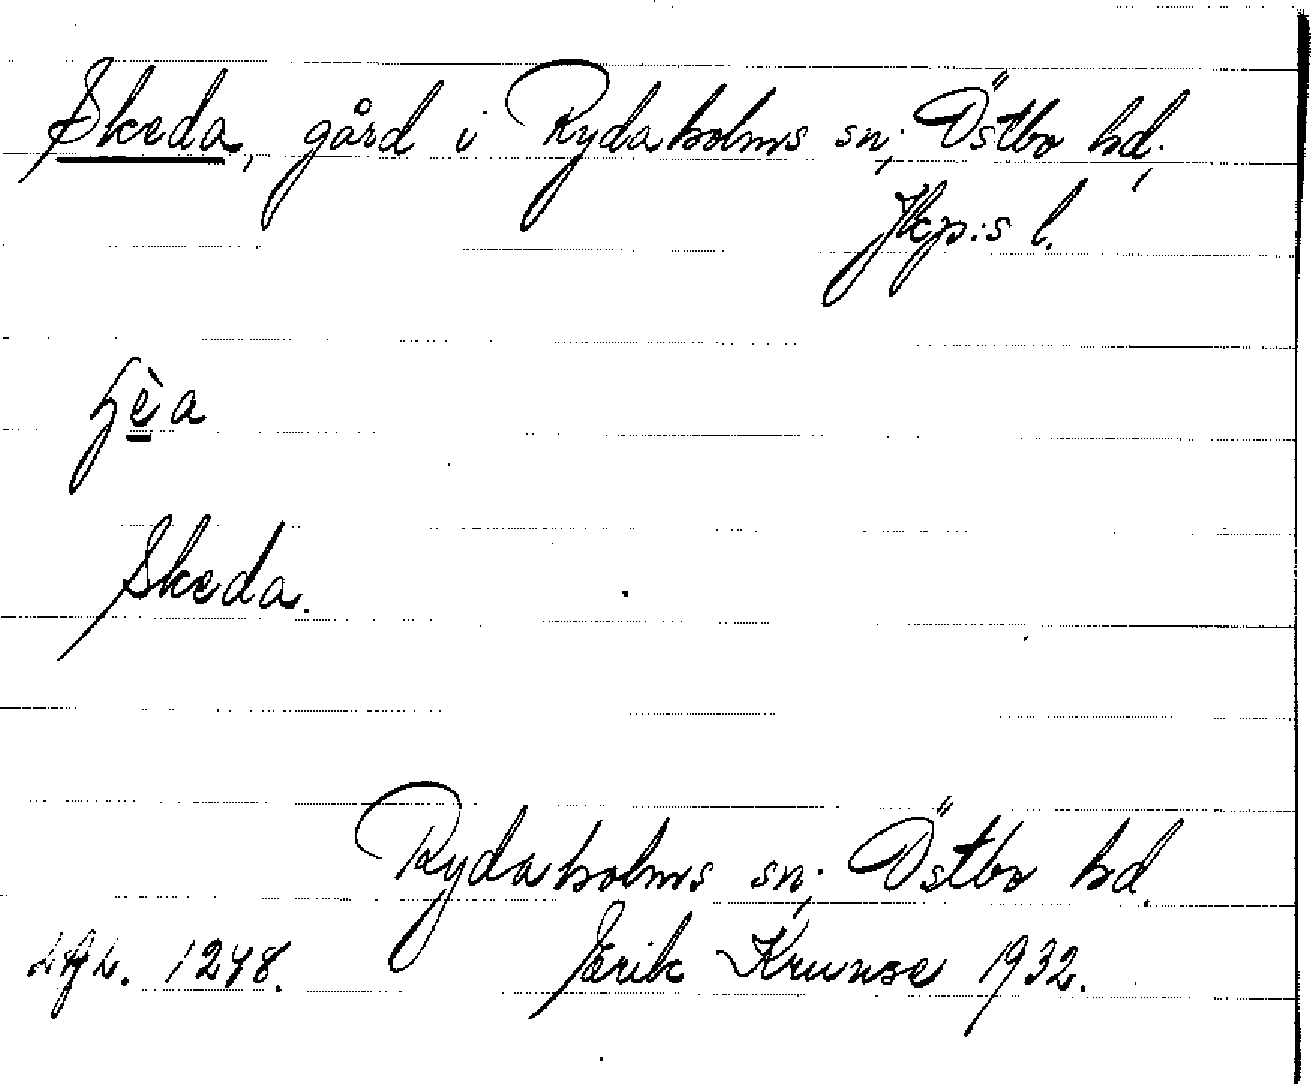 Skeda, gård i Rydaholms sn; Östbo hd;
Jkp:s l.
ɧè̲a
Skeda.
Rydaholms sn; Östbo hd.
1248. Erik Krunse 1932.